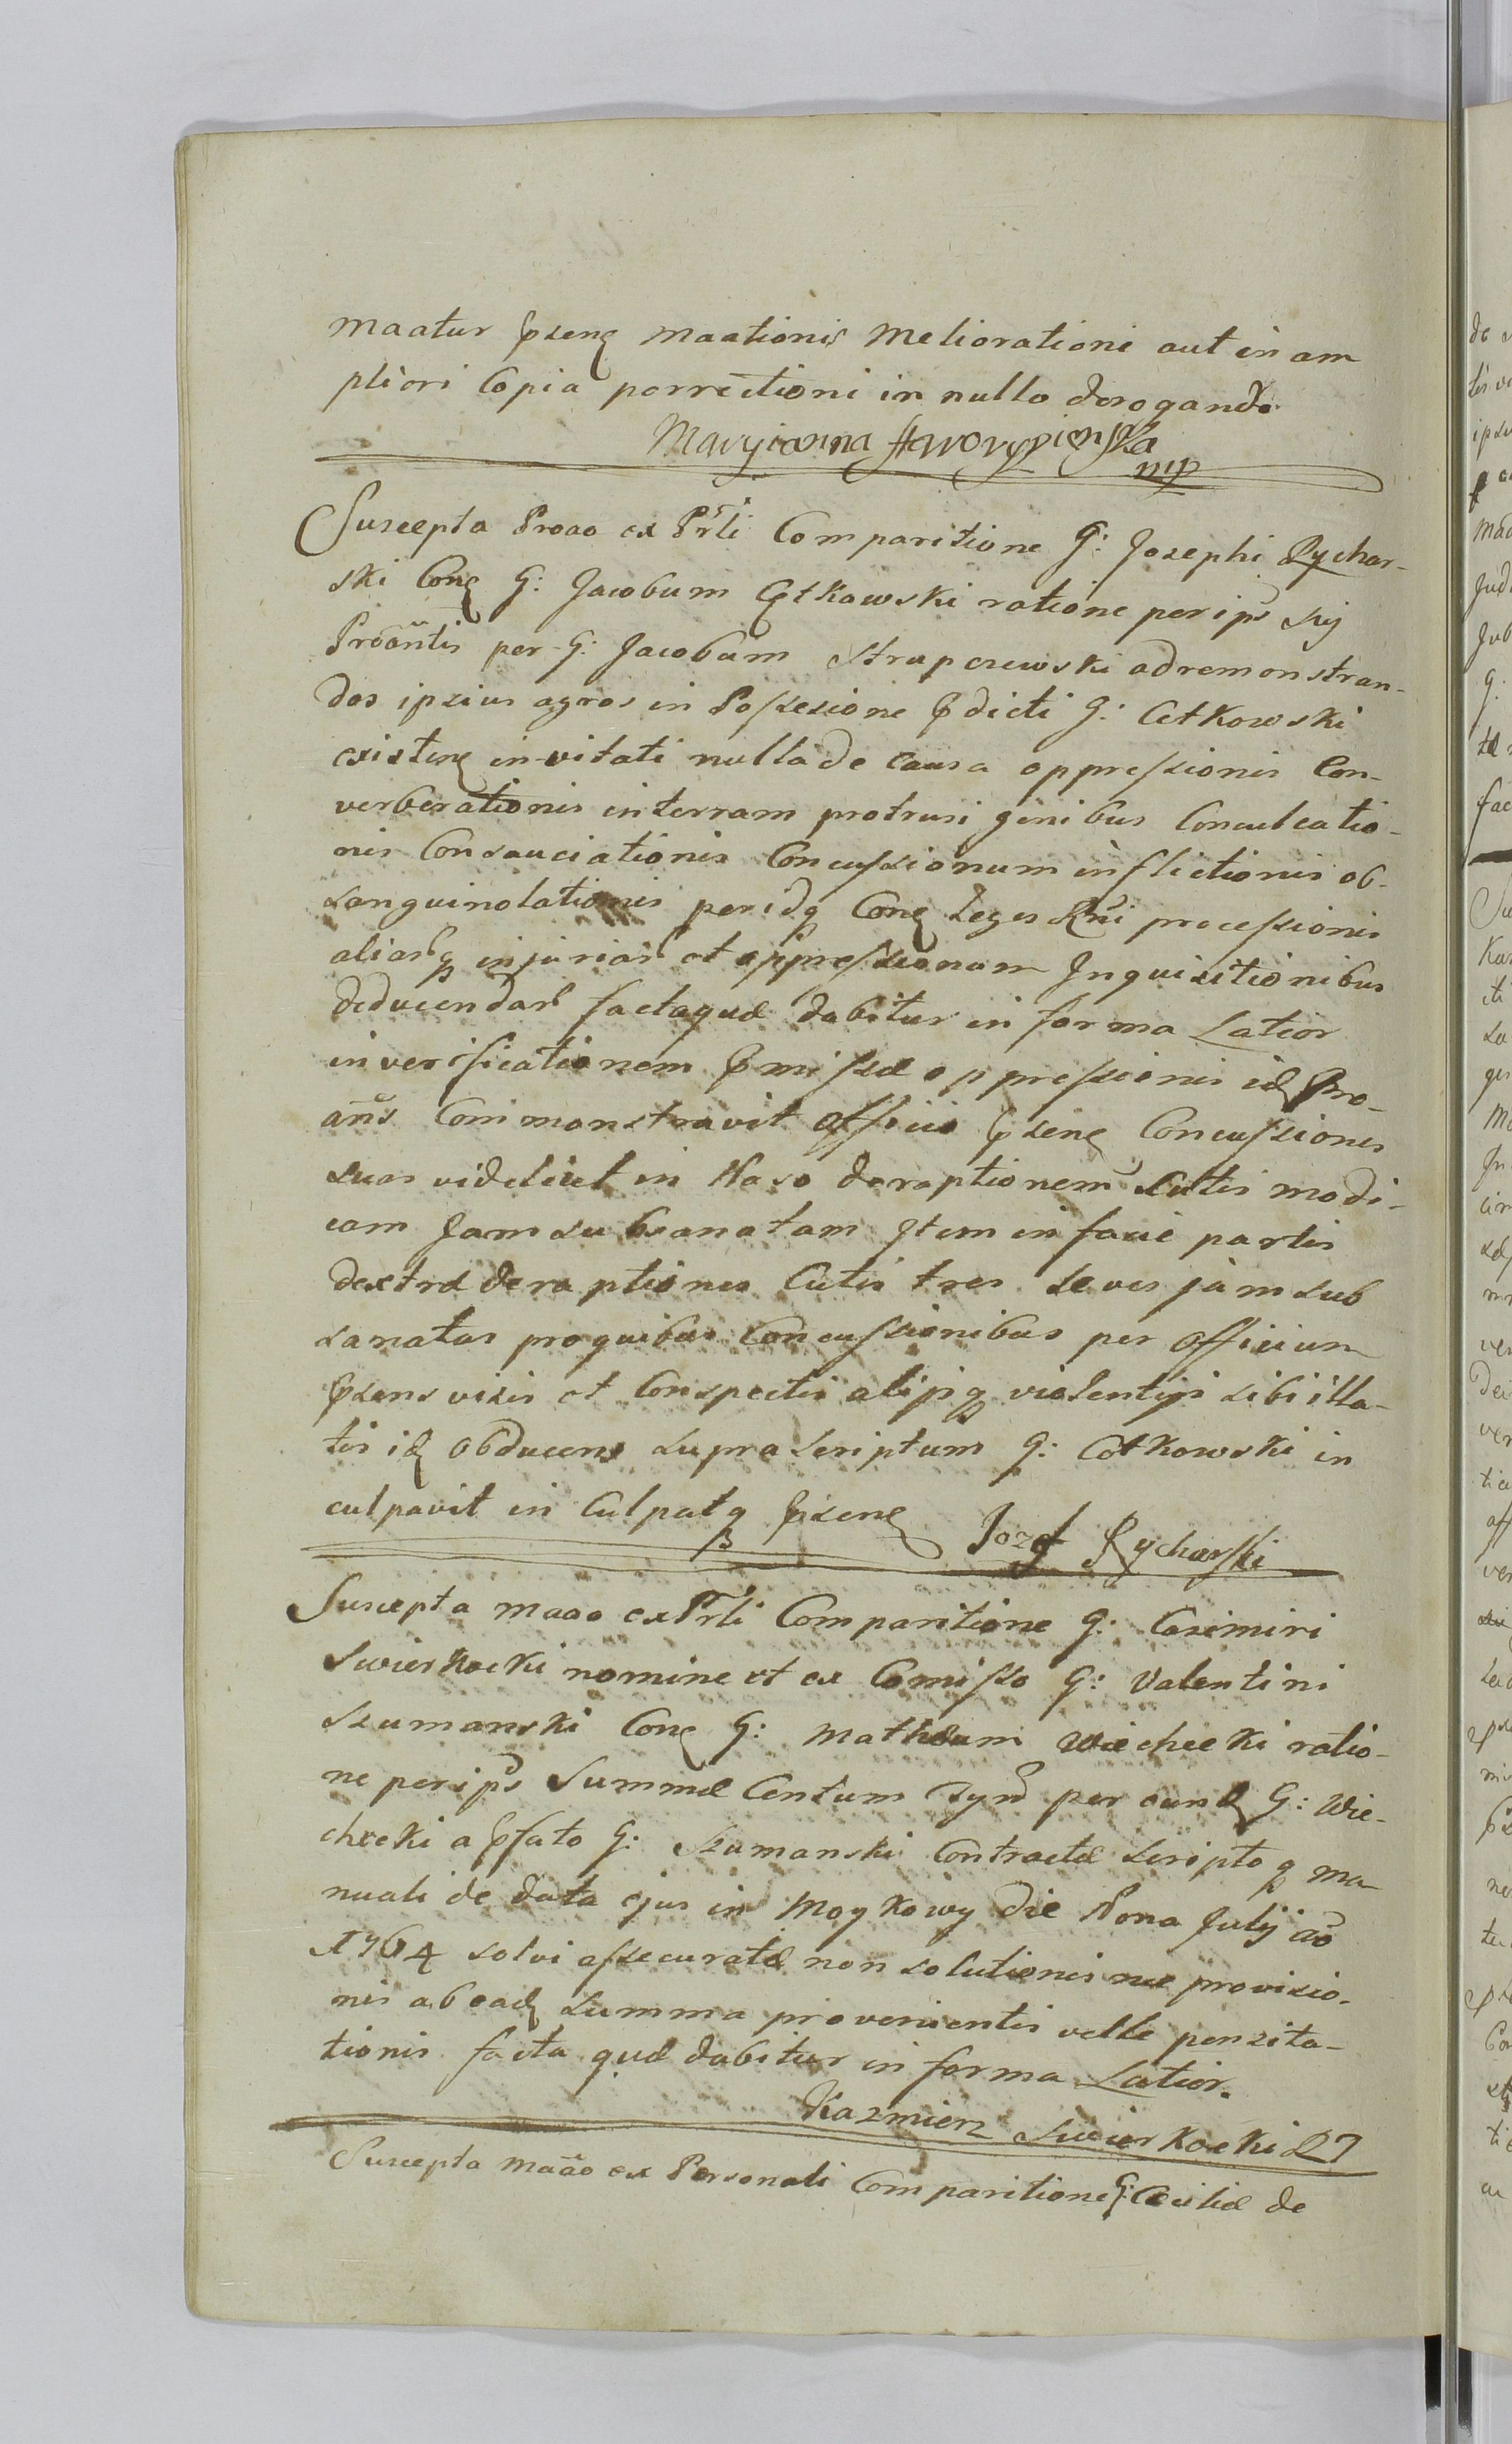 maatur p̃senę maationis Meliorationi aut in am
pliori Copia porrectioni in nullo derogando
Maryianna
mp
Suscepta Proao ex Prli Comparitione G: Josephi Rychar-
ski Conę G: Jacobum Cętkowski ratione per ips sui
Proantis per G: Jacobum Strupczewski ad remonstran-
dos ipsius agros in Possesione p̃dicti G: Cetkowski
existenę invitati nulla de Causa oppressionis Con-
verberationis in terram protrusi genibus Conculcatio-
nis Consauciationis Concussionum inflictionis ob-
sanguinolationis per idq Conę Leges Rni processionis
aliarq injuriar et oppressionum Inquisitionibus
deducendar factaquæ dabitur in forma Latior
in verificationem p̃missæ oppressionis idę Pro-
ans Commonstravit Officio p̃senę Concussiones
suas videlicet in Naso deraptionem Cutis modi-
cam Jam subsanatam Item in facie partis
dextræ deraptiones Cutis tres Leves jam sub
sanatas pro quibus Concussionibus per Officium
p̃sens visis et Conspectis alijsq violentijs sibi illa-
tis idę obducens supra scriptum G: Cętkowski in
culpavit in Culpatq p̃senę Jozef Rycharski
Suscepta maao ex Prli Comparitione G: Casimiri
Swierkocki nomine et ex Comisso G: Valentini
Szumanski Conę G: Mathæum Wiechecki ratio-
ne per ips Summæ Centum Tyn per eundę G: Wie-
checki a p̃fato G: Szumanski Contractæ scripto q ma
nuali de data ejus in Moykowy die Nona Julij ao
1764 solvi assecuratæ non solutionis nec provisio-
nis ab eadę summa provenientis velle pensita-
tionis facta quæ dabitur in forma Latior.
Kazmierz Swierkocki
Suscepta maao ex Personali Comparitione G: Cæciliæ de